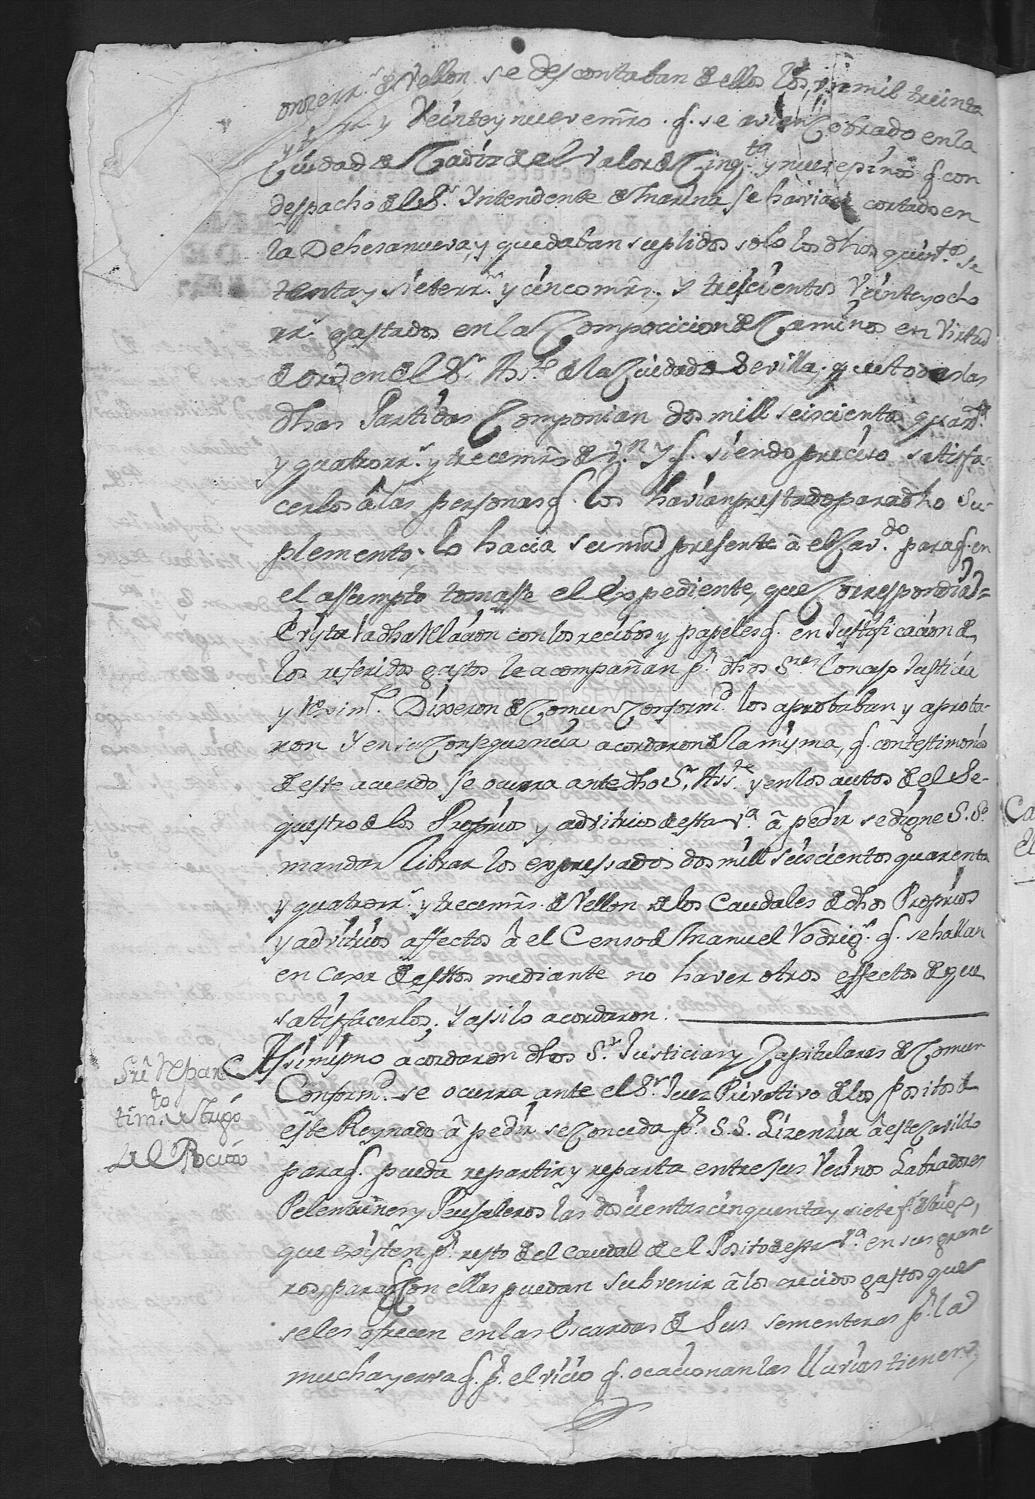 onze rr.s de Vellon, se descontaban de ellos los un mil treinta
y rr.s y Veinte y nueve mrs. q. se avian Cobrado en la
Ciudad de Cadiz de el Valor de Cinq.ta y nueve pinos q. con
despacho de el S.r Yntendente de Marina se havian cortado en
la Dehesa nueva, y quedaban suplidos solo los dhos quin.tos se
tenta y siete rr.s y cinco mrs. y trescientos Veinte y ocho
rr.s gastados en la Composicion de Caminos en Virtud
de orden de el S.r Ass.te de la Ciudad de Sevilla, que todas las
dhas Partidas Componian dos mill seiscientos quar.ta
y quatro rr.s y trece mrs de v.n Y q. siendo preciso satisfa-
cerlos â las personas q. los havian prestado para dho Su-
plemento, lo hacia su mrd presente â el Cav.do para q. en
el assumpto tomasse el Expediente, que Correspondia =
Evista la dha Relazion con los recibos y papeles q. en Justificacion de
los referidos gastos le acompañan p.r dhos S.res Concejo Justicia
y Regim.to Dixeron de Comun Conform.d los aprobaban y aproba-
ron Y en su Consequencia acordaron de la misma, q. con testimonio
de este acuerdo se ocurra ante dho S.r Ass.te y en los autos de el Se-
questro de los Proprios y advitrios de esta V.a â pedir se digne S.Sa.
mandar librar los expressados dos mill seiscientos quarenta
y quatro rr.s y trece mrs. de Vellon de los Caudales de dhos Proprios
y advitrios affectos â el Censo de Manuel Rodrig.s q. se hallan
en caxa de estos mediante no haver otros effectos de que
satisfacerlos. Y assi lo acordaron.
Sre Repar-
tim.to de trigo
de el Pocito
Assimismo acordaron dhos S.res Justicia y Capitulares de Comun
Conform.d se ocurra ante el S.r Juez Privativo de los positos de
este Reynado â pedir se Conceda p.r S.S. Lizencia â este Cavildo
para q. pueda repartir y reparta entre sus Vecinos Labradores
Pelentrines y Peujaleros las doscientas cinquenta y siete f.s de trigo,
que existen p.r resto de el caudal de el Posito de esta V.a en sus grane
ros, para q. Con ellas puedan subvenir â los crecidos gastos que
seles ofrecen en las Escardas de Sus sementeras p.r la
mucha yerva q. p.r el vicio q. ocacionan las lluvias tienen